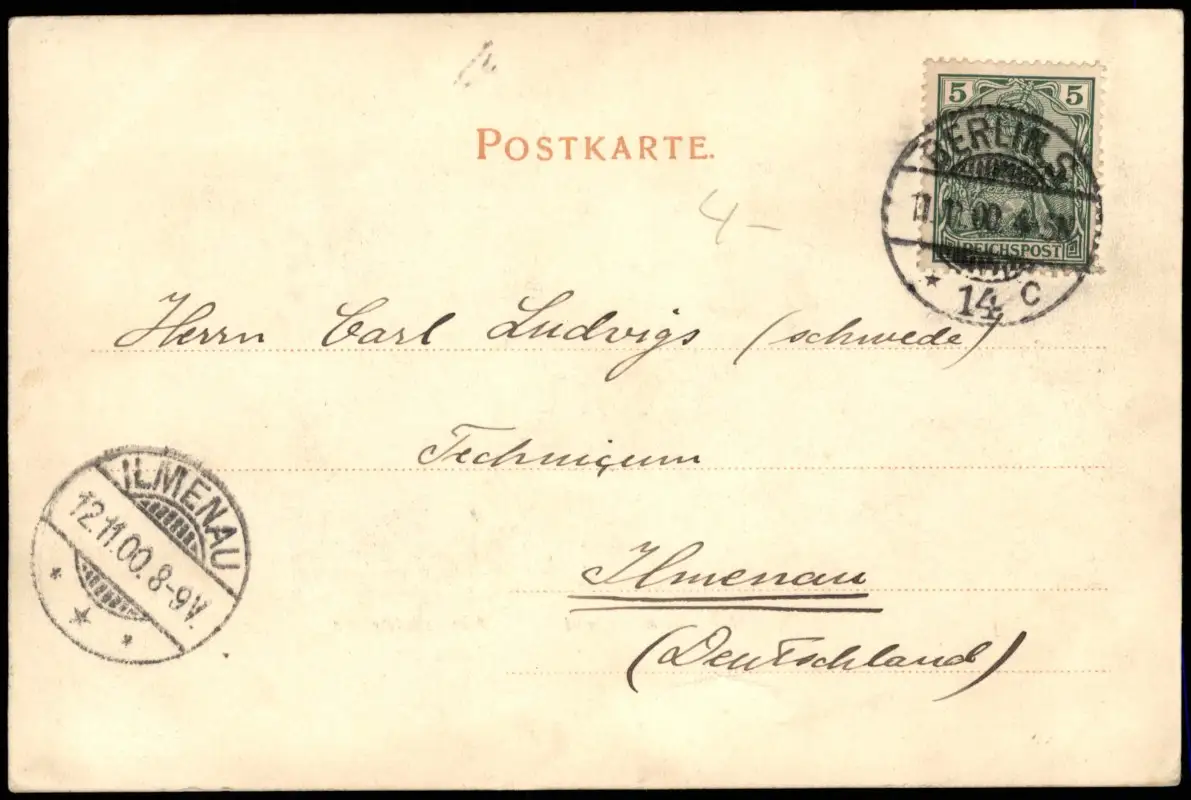 POSTKARTE.
5 5
REICHSPOST
BERLIN.S.
11.11.00. 4-5N
* 14 C
4-
Herrn Carl Ludvigs (schwede)
Technicum
Ilmenau
(Deutschland)
ILMENAU
12.11.00.8-9V.